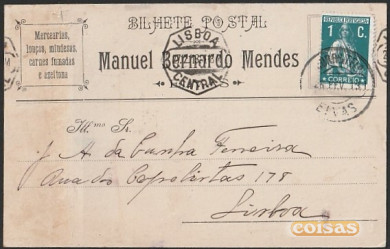 BILHETE POSTAL
Mercearias,
louças, miudezas,
carnes fumadas
e azeitona
LISBOA
CENTRAL
Manuel Bernardo Mendes
REPUBLICA PORTUGUESA
1 C.
CORREIO
ELVAS
Ill.mo Sr.
J A da Cunha Ferreira
Rua dos Capelistas 178
Lisboa
coisas